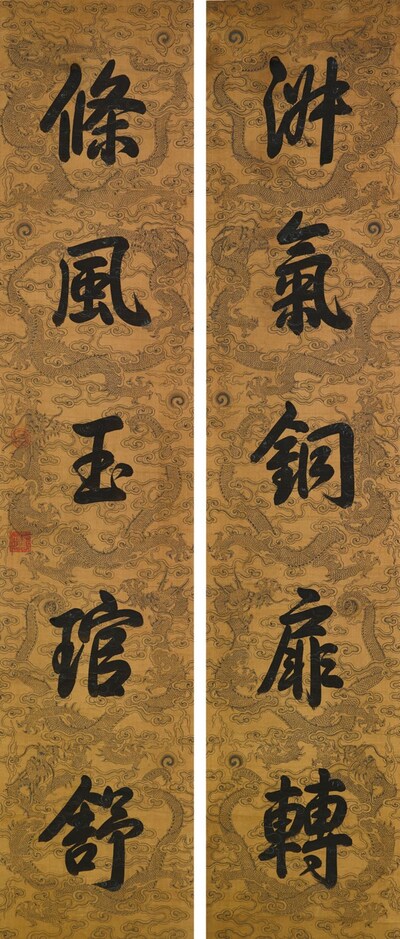 淑氣銅扉轉
條風玉琯舒